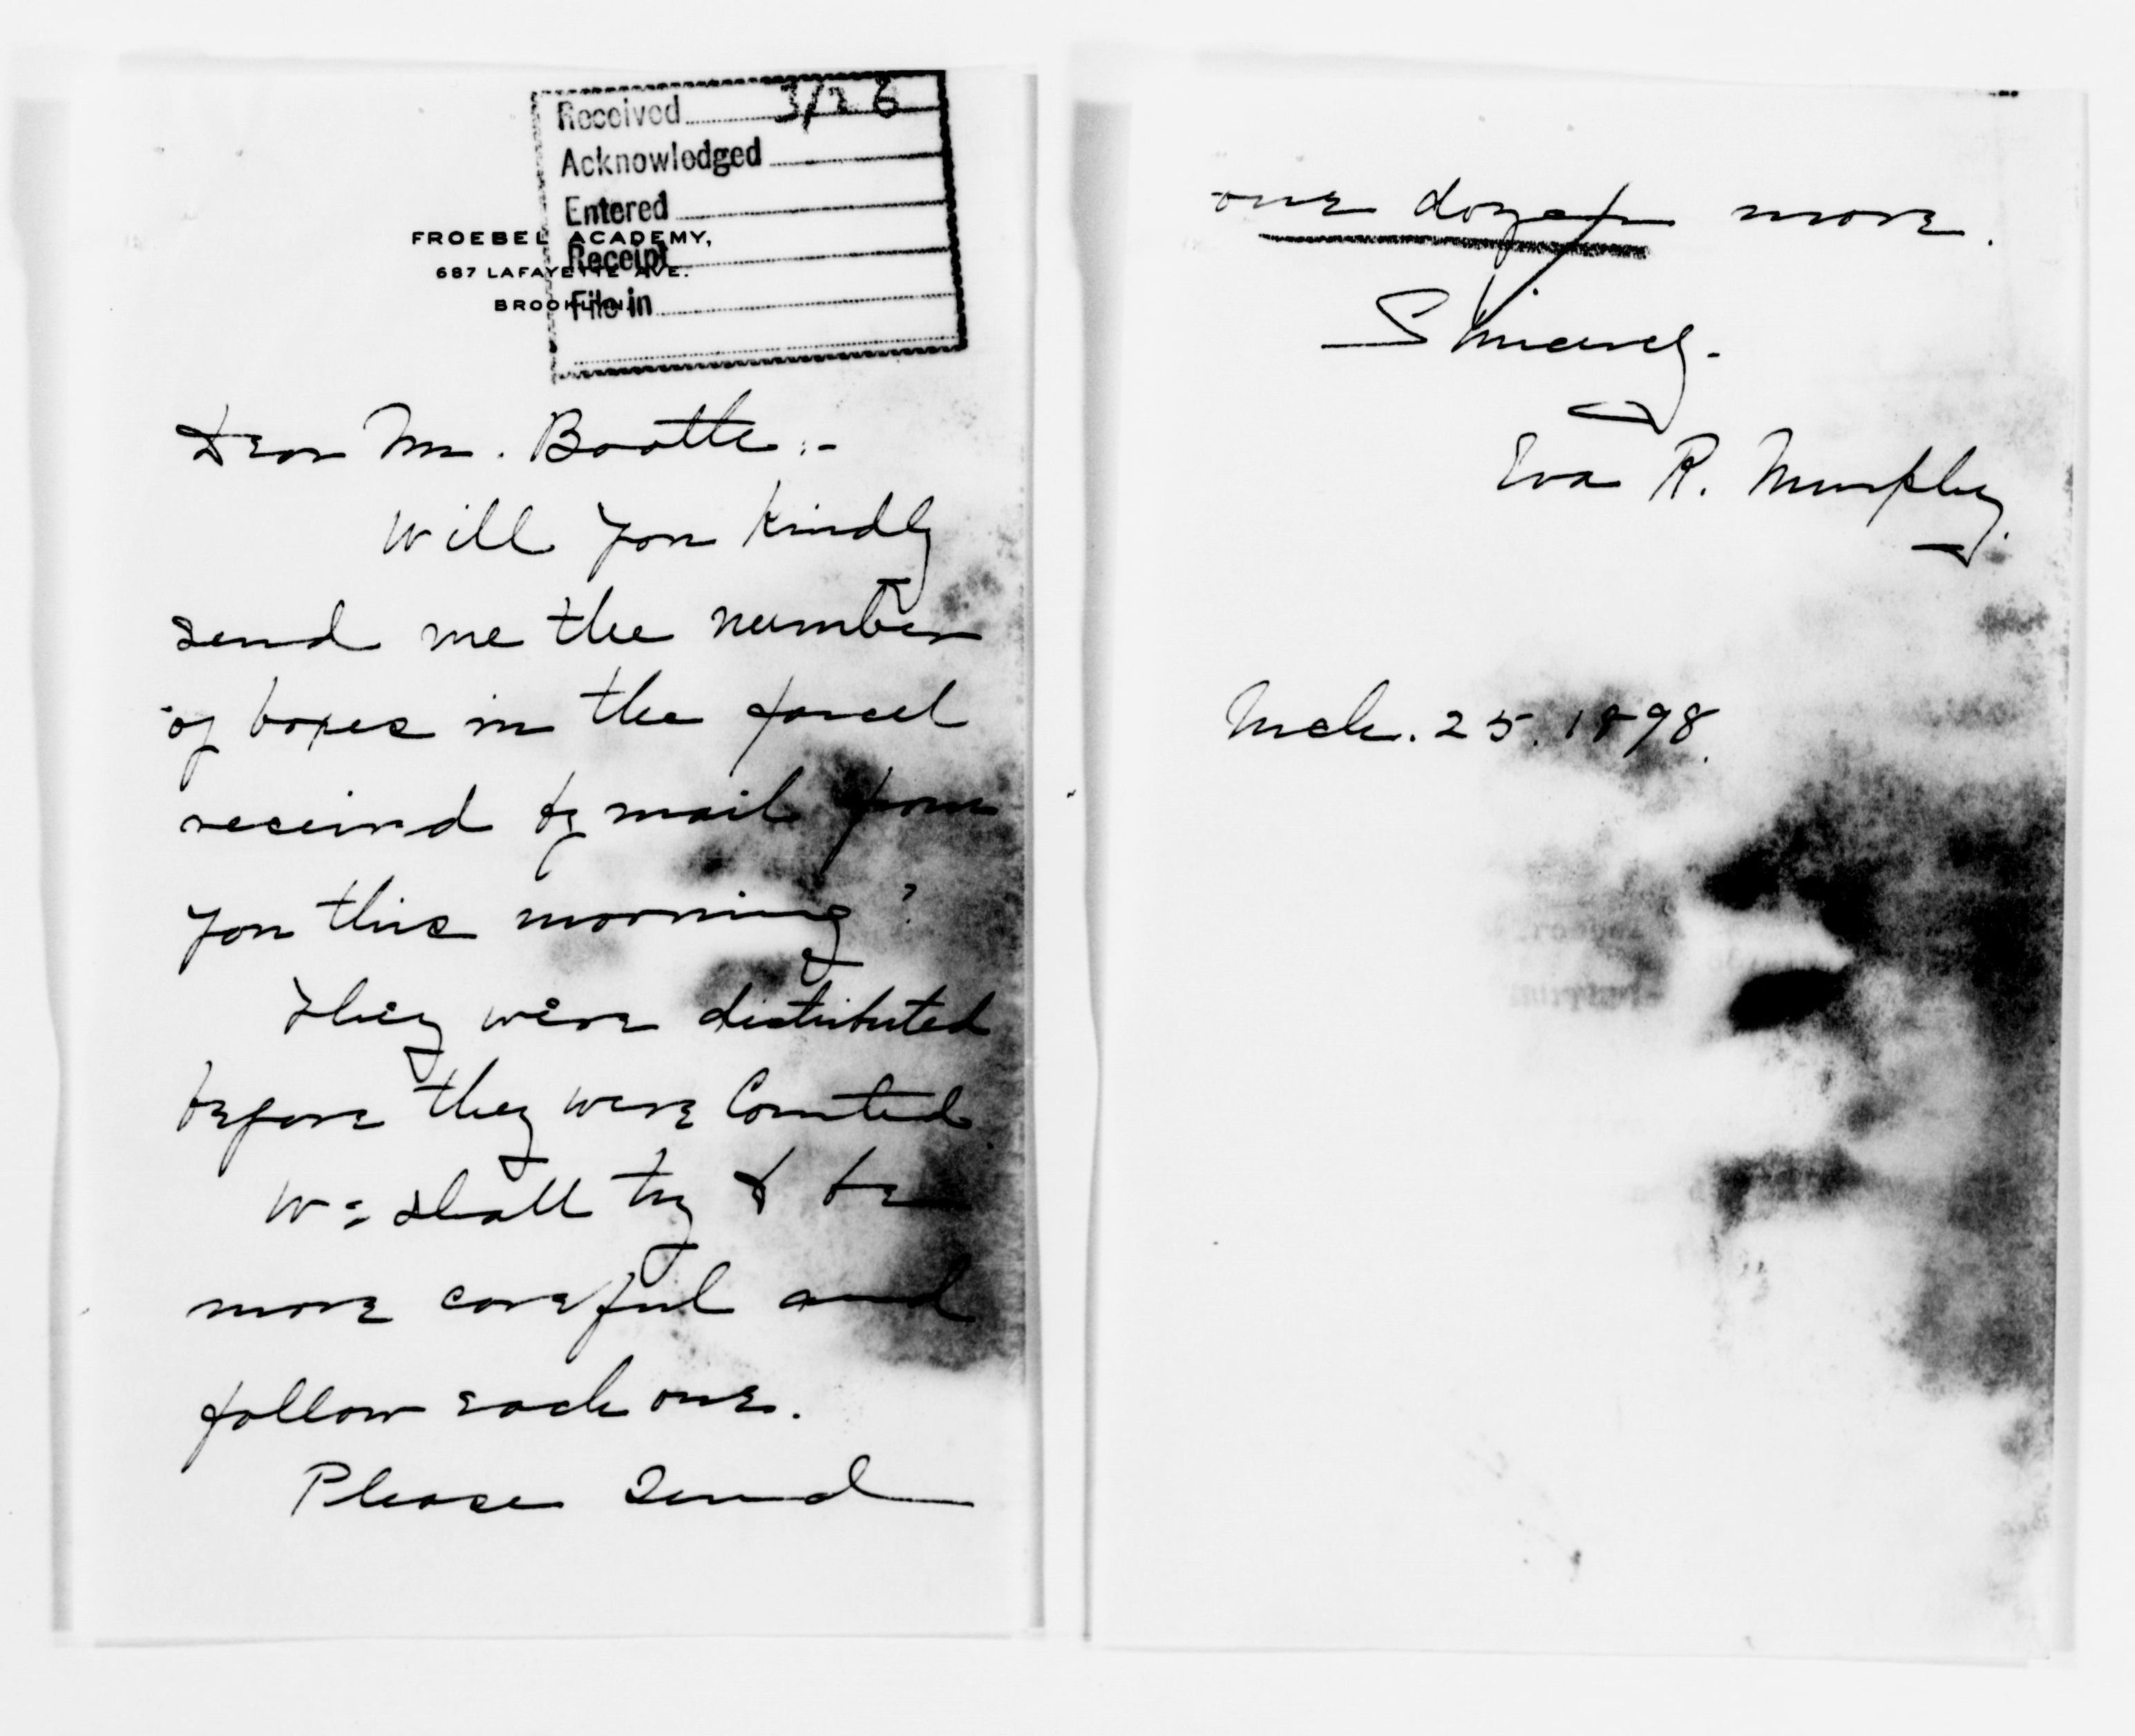 Received 3/26
Acknowledged
Entered
FROEBEL ACADEMY,
Receipt
687 LAFAYETTE AVE.
BROOKLYN.
File in
Dear Mr. Bootte:-
Will you kindly
send me the number
of boxes in the parcel
received by mail from
you this morning?
They were distributed
before they were Counted.
We shall try & be
more careful and
follow each one.
Please send
one dozen more.
Sincerely.
Eva R. Murphy.
Mch. 25. 1898.